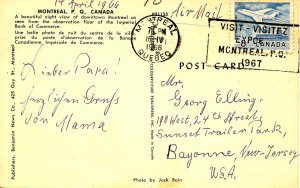 14 April 1966
MONTREAL, P. Q., CANADA
A beautiful night view of downtown Montreal as
seen from the observation floor of the Imperial
Bank of Commerce.
Une belle photo de nuit du centre de la ville
prise du poste d'observation de la Banque
Canadienne, Impériale de Commerce.
Air Mail
MONTREAL
PM
15 IV
1966
QUEBEC
VISIT - VISITEZ
EXPO
MONTREAL, P.Q.
1967
CANADA
POST CARD
Lieber Papa!
herzlichen Gruß
von Mama
Mr.
Georg Elling
West, 24th Street
Sunset Trailer Park,
Bayonne, New-Jersey
USA.
Publishers, Benjamin News Co.
Photo by Jack Bain